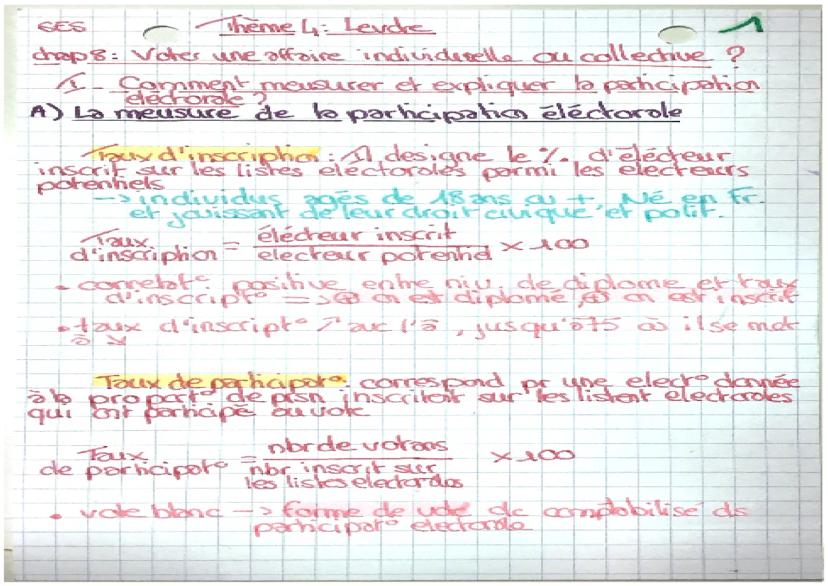 SES Thème 4: Leudre 1
chap 8: Voter une affaire individuelle ou collective ?
I - Comment meusurer et expliquer la participation
électorale ?
A) La meusure de la participation éléctorale
Taux d'inscription : Il designe le % d'élécteur
inscrit sur les listes eléctorales parmi les electeurs
potentiels
-> individus agés de 18 ans ou +, Né en Fr.
et jouissant de leur droit civique et polit.
Taux d'inscription = élécteur inscrit / electeur potentiel × 100
• correlat° positive entre niv. de diplome et taux
d'inscript° => ⊕ on est diplomé, ⊕ on est inscrit
• taux d'inscript° ↗ avc l'â, jusqu'à 75 où il se met
à ↘
Taux de participat° : correspond pr une elect° donnée
à la proport° de prsn inscritent sur les listent electorales
qui ont participé au vote
Taux de participat° = nbr de votans / nbr inscrit sur les listes electorales × 100
• vote blanc -> forme de vote dc comptabilisé ds
participat° electorale